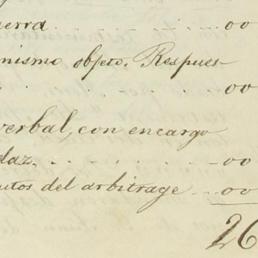 erra . . . . . . 00
mismo objeto. Respues
. . . . . . 00
verbal, con encargo
daz. . . . . . . 00
utos del arbitrage . . 00
26